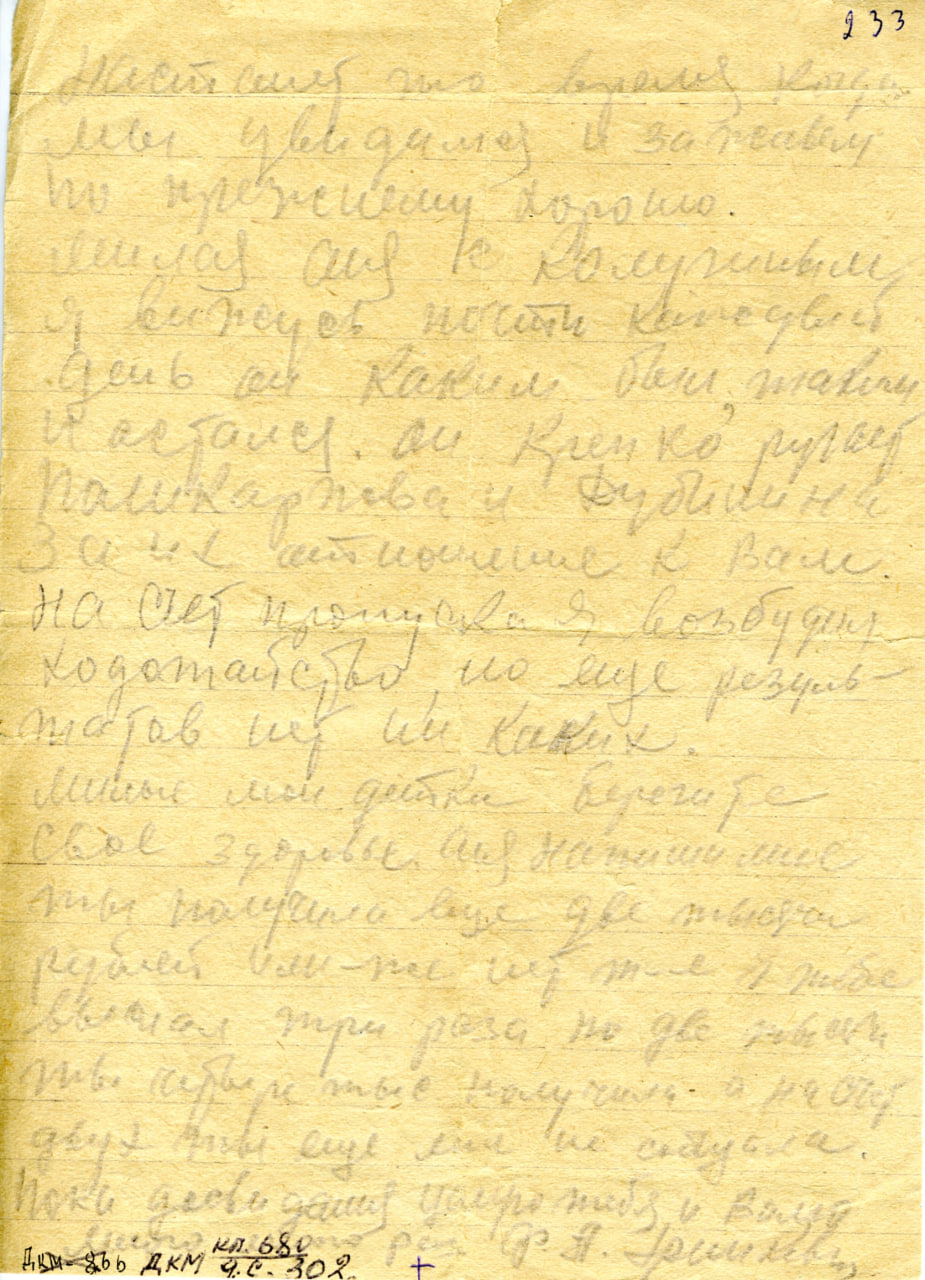 233
Настанет то время когда
мы увидимся и заживем
по прежнему хорошо.
милая Аня с Калугиным
я вижусь почти каждый
день он каким был, таким
и остался. он крепко ругает
и Дубинина
за их отношение к Вам.
на счет пропуска я возбудил
ходотайство, но еще резуль-
татов нет ни каких.
милые мои детки берегите
свое здоровье. Аня напиши мне
ты получила еще две тысячи
рублей или-же нет т-е я тебе
выслал три раза по две тысячи
ты четыре тыс получила а на счет
двух ты еще мне не писала.
Пока досвидания целую тебя и Валю
много много раз Ф. П.
ДКМ-866 ДКМ кп. 680
Ч.С. 302.